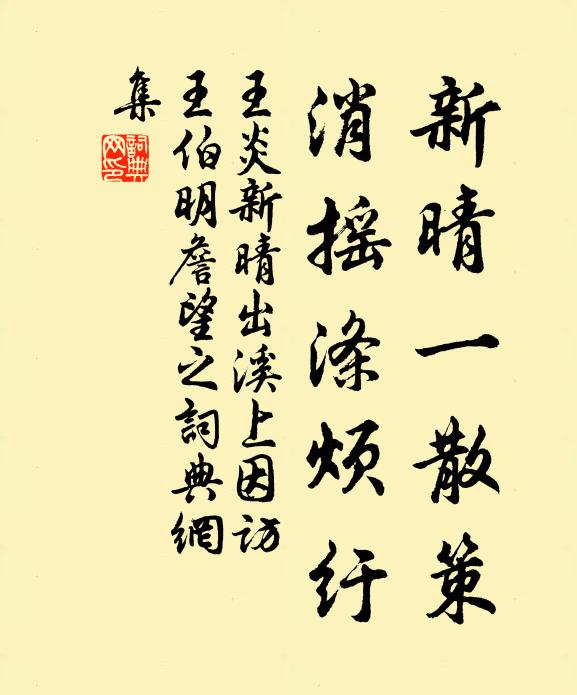 新晴一散策
消摇涤烦纡
王炎新晴出溪上因访
王伯明詹望之詞典網
集
詞典網印